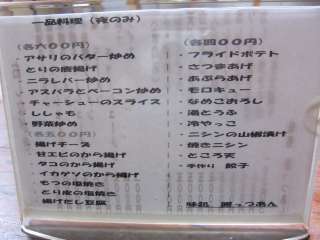 一品料理（夜のみ）
(各六００円)
・アサリのバター炒め
・とりの唐揚げ
・ニラレバー炒め
・アスパラとベーコン炒め
・チャーシューのスライス
・ししゃも
・野菜炒め
(各五００円)
・揚げチーズ
・甘エビのから揚げ
・タコのから揚げ
・イカゲソのから揚げ
・もつの塩焼き
・とり皮の塩焼き
・揚げだし豆腐
(各四００円)
・フライドポテト
・さつまあげ
・あぶらあげ
・モロキュー
・なめこおろし
・湯とうふ
・冷やっこ
・ニシンの山椒漬け
・焼きニシン
・ところ天
・手作り 餃子
味処 っつあん